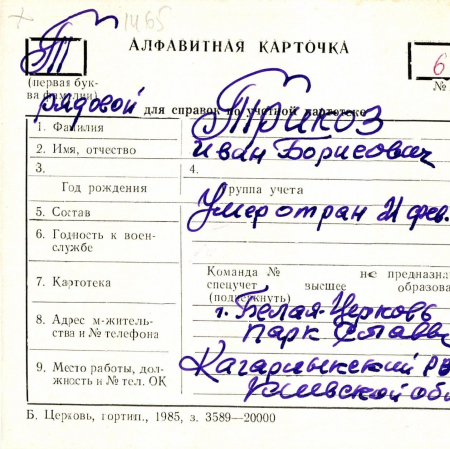 1465
АЛФАВИТНАЯ КАРТОЧКА
Т
6
(первая бук-
ва фамилии)
№
рядовой
для справок по учетной картотеке
1. Фамилия
Трикоз
2. Имя, отчество
Иван Борисович
3.
4.
Год рождения
Группа учета
5. Состав
Умер от ран 21 фев.
6. Годность к воен-
службе
7. Картотека
Команда № не предназна
спецучет высшее образова
(подчеркнуть)
8. Адрес м-житель-
ства и № телефона
г. Белая-Церковь
парк
9. Место работы, дол-
жность и № тел. ОК
Кагарлыкский РВ
Киевской обл
Б. Церковь, гортип., 1985, з. 3589—20000